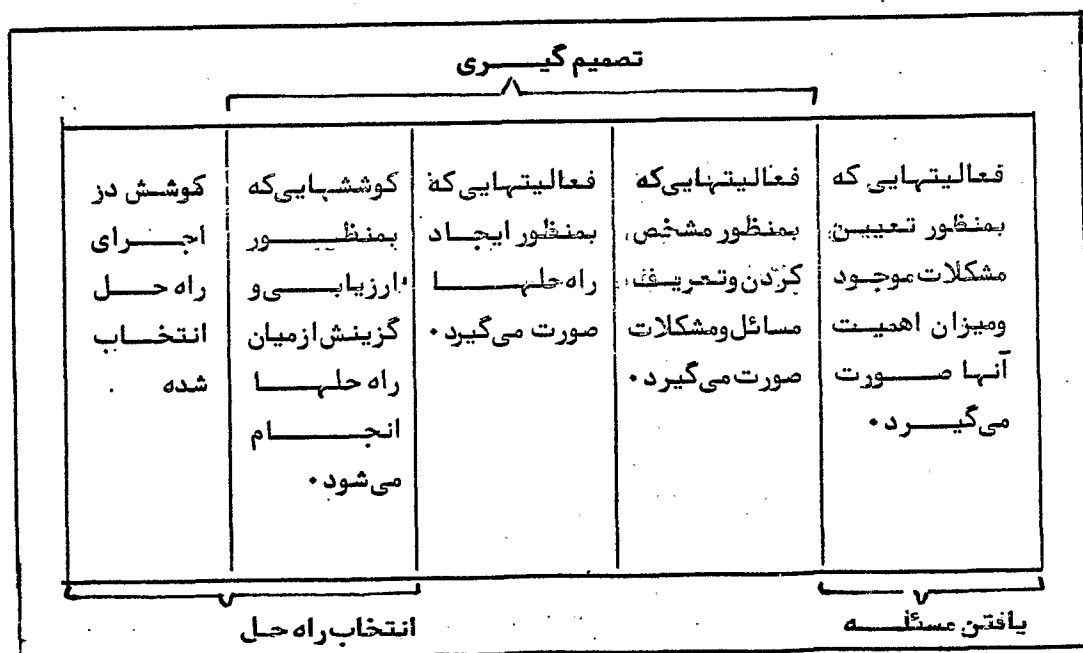 تصمیم گیــــری
فعالیتهایی که
بمنظور تعییــن
مشکلات موجـود
ومیزان اهمیـت
آنها صــــورت
می‌گیــــرد.
فعالیتهایی‌که
بمنظور مشخص
کردن وتعریـف
مسائل ومشکلات
صورت می‌گیرد.
فعالیتهایی‌که
بمنظور ایجـاد
راه حلهــــــا
صورت می‌گیرد.
کوششهایی‌که
بمنظــــــور
ارزیابــــی و
گزینش ازمیان
راه حلهــــا
انجــــــام
می‌شود.
کوشش در
اجــــرای
راه حــــل
انتخــاب
شده
یافتن مسئلـــه
انتخاب راه حـل